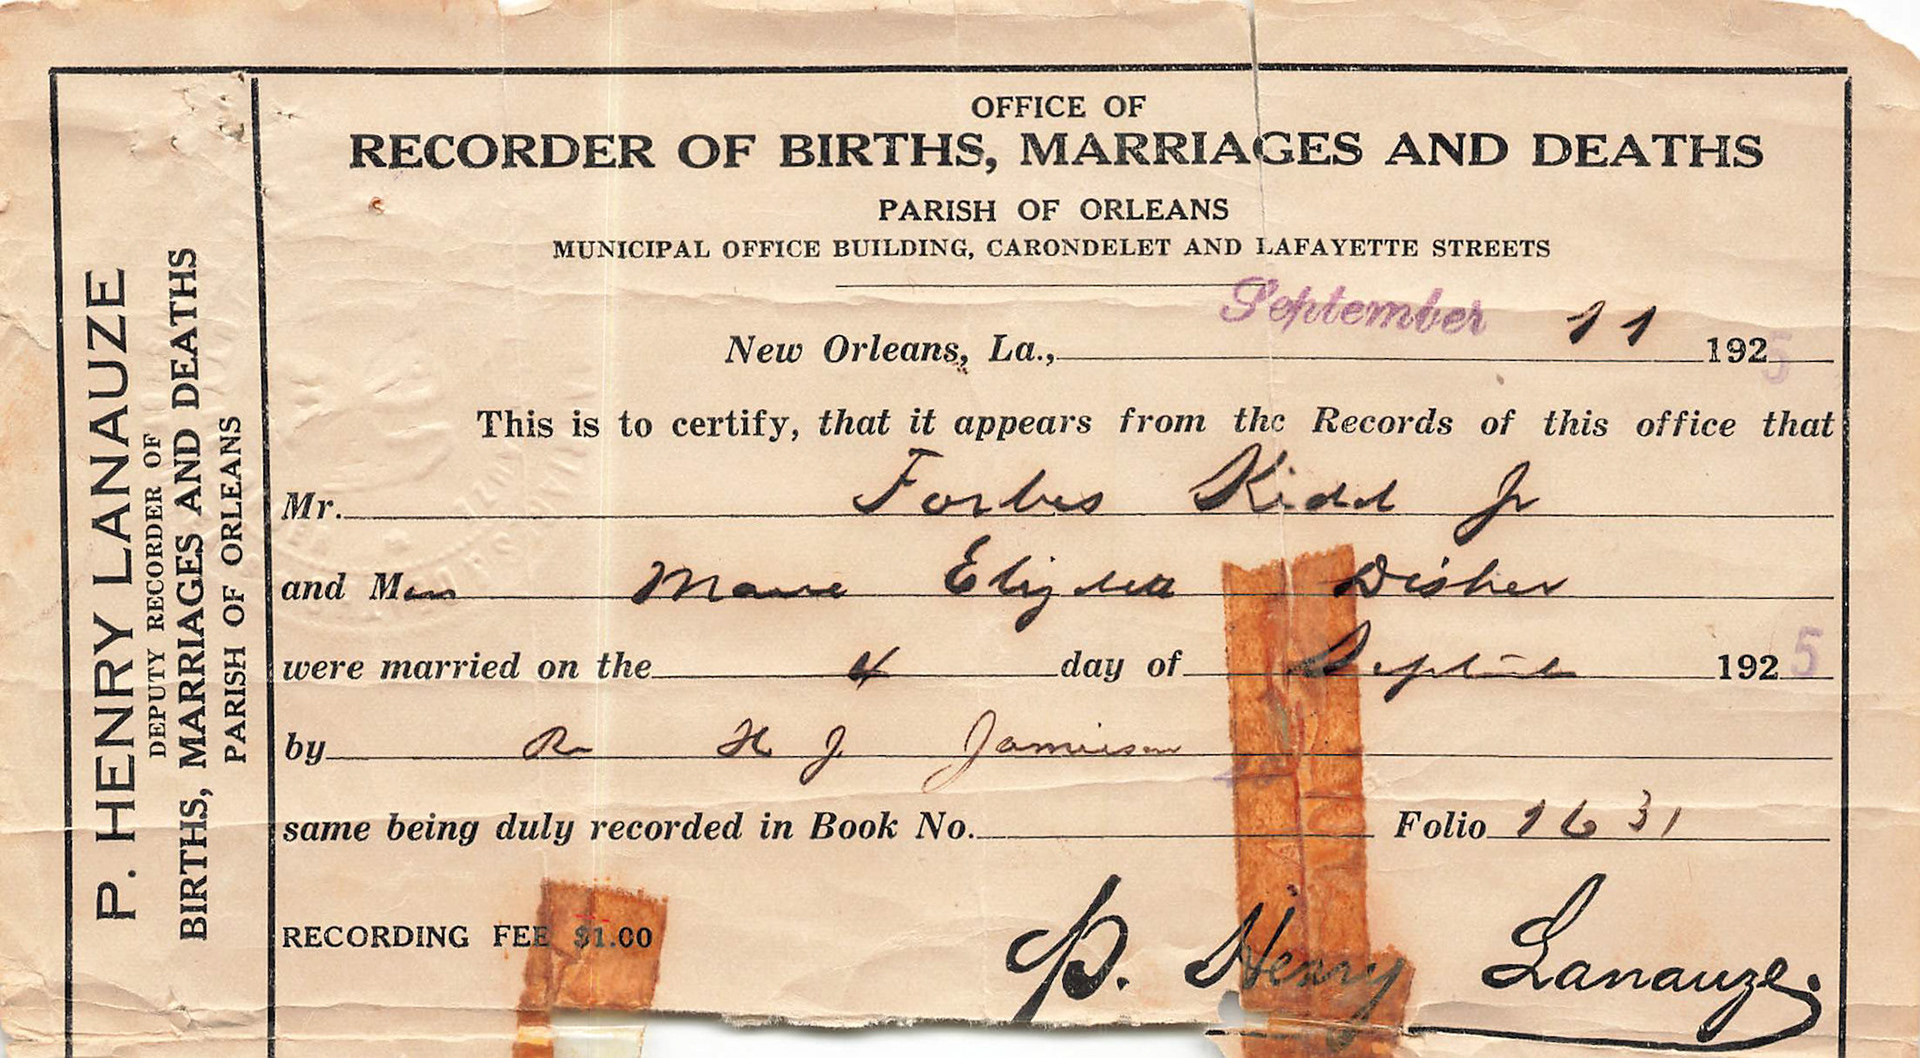 P. HENRY LANAUZE
DEPUTY RECORDER OF
BIRTHS, MARRIAGES AND DEATHS
PARISH OF ORLEANS
OFFICE OF
RECORDER OF BIRTHS, MARRIAGES AND DEATHS
PARISH OF ORLEANS
MUNICIPAL OFFICE BUILDING, CARONDELET AND LAFAYETTE STREETS
New Orleans, La., September 11 1925
This is to certify, that it appears from the Records of this office that
Mr. Forbes Kidd Jr
and Miss Marie Elizabeth Disher
were married on the 4 day of 1925
by H J Jamieson
same being duly recorded in Book No. Folio 1631
RECORDING FEE $1.00
P. Henry Lanauze.